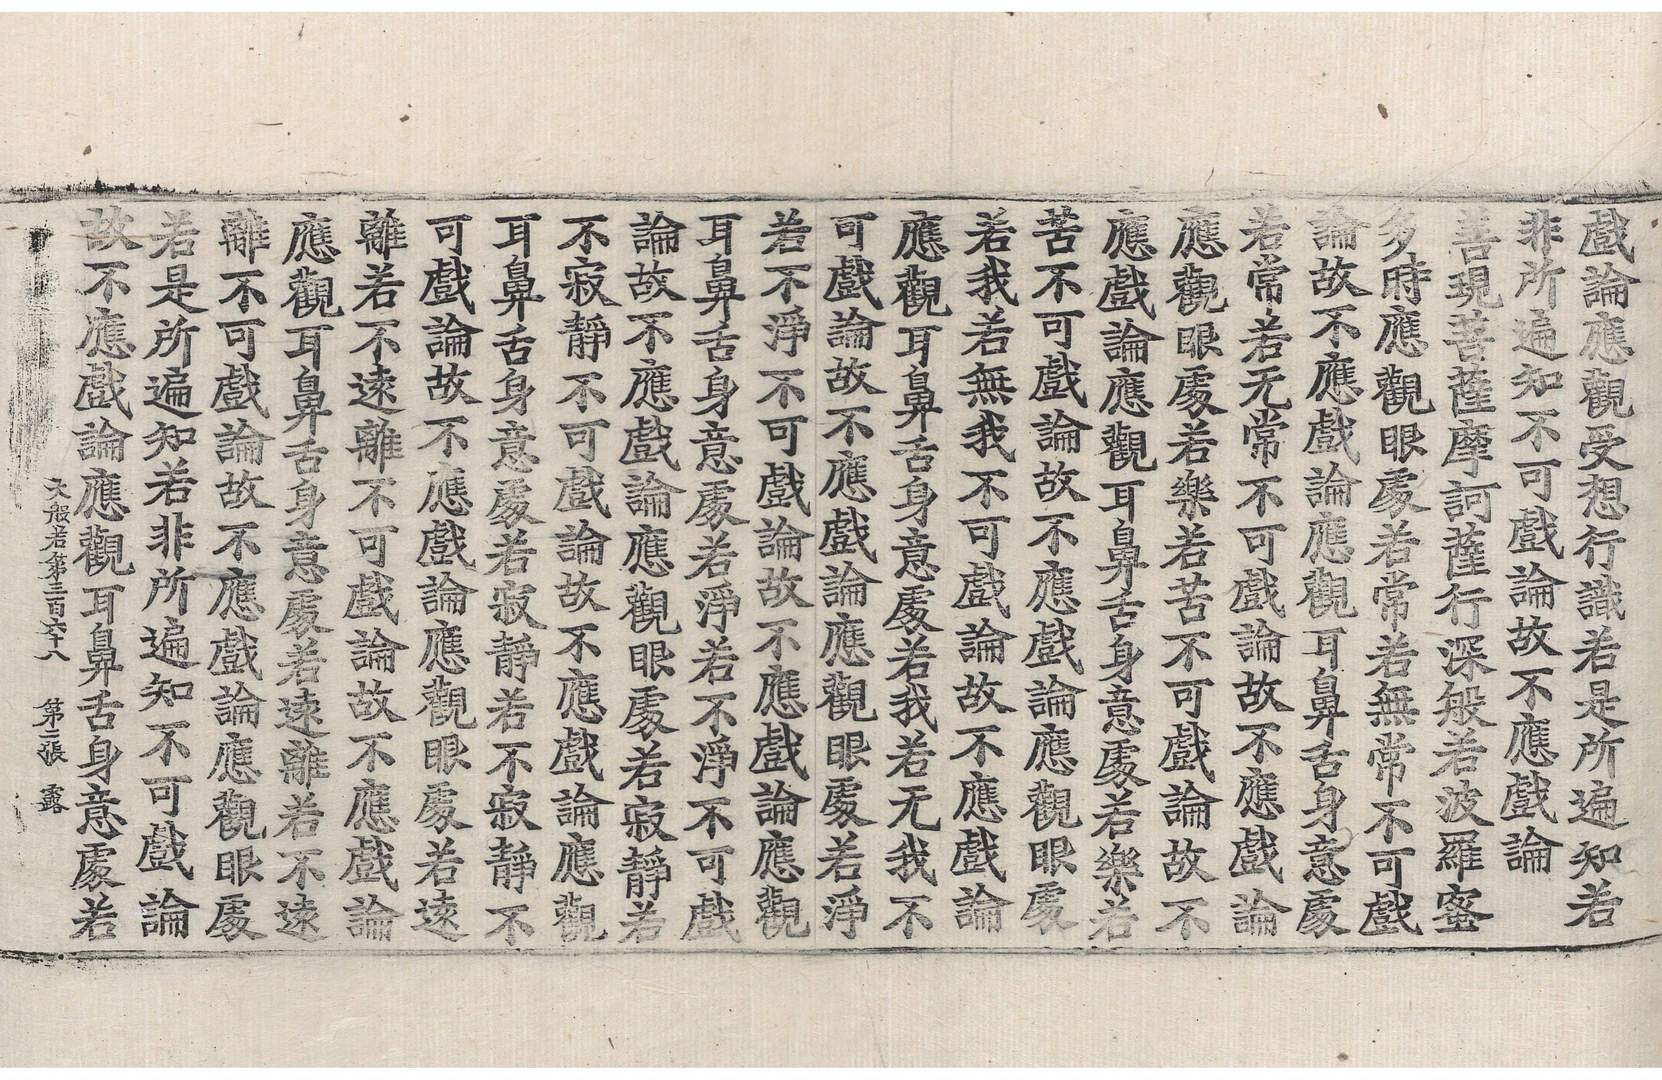 戲論應觀受想行識若是所遍知若
非所遍知不可戲論故不應戲論
善現菩薩摩訶薩行深般若波羅蜜
多時應觀眼處若常若無常不可戲
論故不應戲論應觀耳鼻舌身意處
若常若无常不可戲論故不應戲論
應觀眼處若樂若苦不可戲論故不
應戲論應觀耳鼻舌身意處若樂若
苦不可戲論故不應戲論應觀眼處
若我若無我不可戲論故不應戲論
應觀耳鼻舌身意處若我若无我不
可戲論故不應戲論應觀眼處若淨
若不淨不可戲論故不應戲論應觀
耳鼻舌身意處若淨若不淨不可戲
論故不應戲論應觀眼處若寂靜若
不寂靜不可戲論故不應戲論應觀
耳鼻舌身意處若寂靜若不寂靜不
可戲論故不應戲論應觀眼處若遠
離若不遠離不可戲論故不應戲論
應觀耳鼻舌身意處若遠離若不遠
離不可戲論故不應戲論應觀眼處
若是所遍知若非所遍知不可戲論
故不應戲論應觀耳鼻舌身意處若
大般若第三百六十八 第二張 露